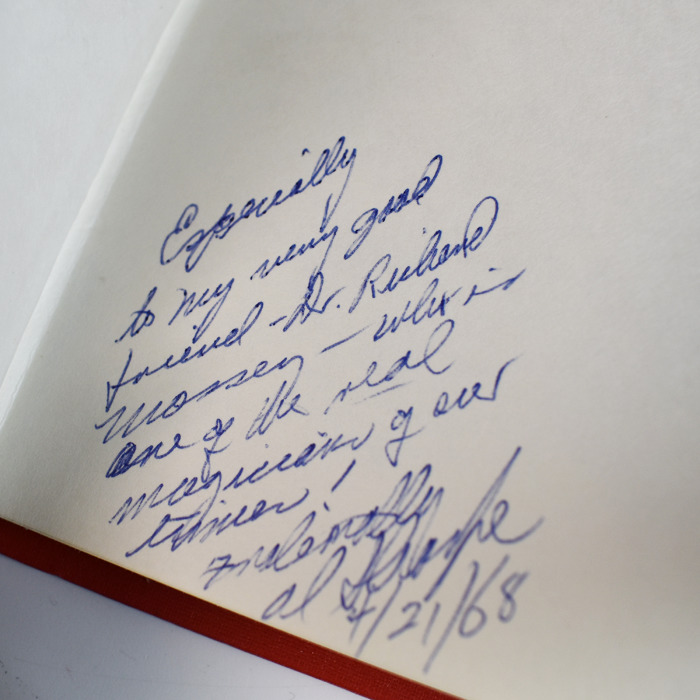 Especially
to my very good
friend - Dr. Richard
Mossey - who is
one of the real
magicians of our
times!
Fraternally
al
7/21/68